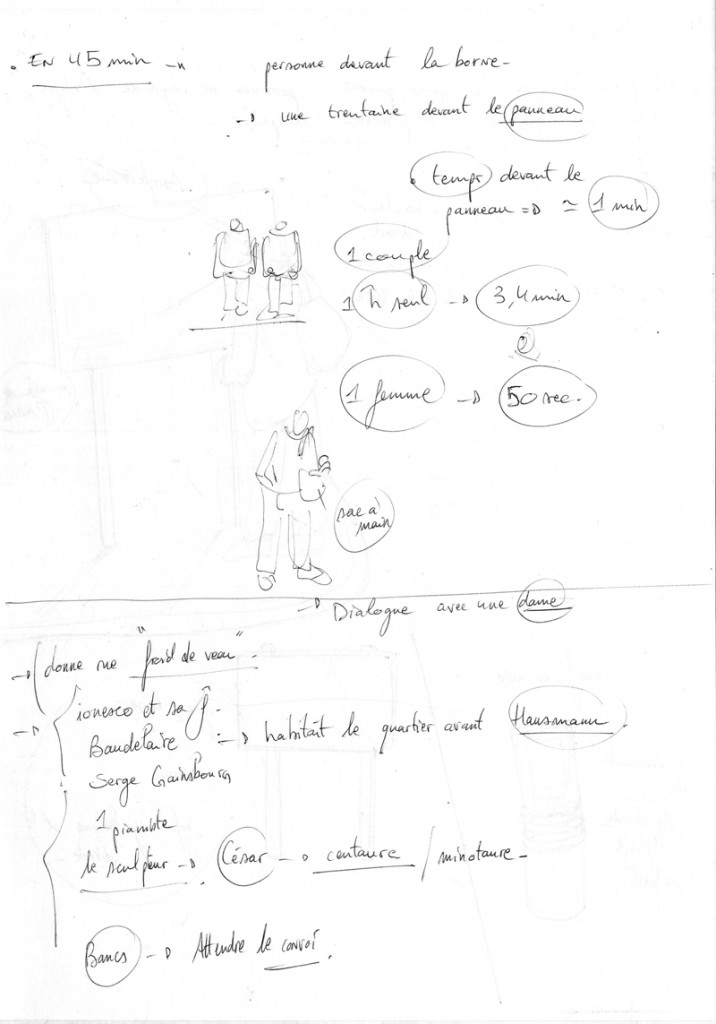 . EN 45 min -> personne devant la borne -
-> une trentaine devant le panneau
. temps devant le
panneau => ≃ 1 min
1 couple
1 h̄ seul -> 3,4 min
1 femme -> 50 sec.
sac à
main
-> Dialogue avec une dame
-> donne rue " de veau" -
-> ionesco et sa f̂.
Baudelaire -> habitait le quartier avant Hausmann
Serge Gainsbourg
1 pianiste
le sculpteur -> César -> centaure / minotaure -
Bancs -> Attendre le convoi.